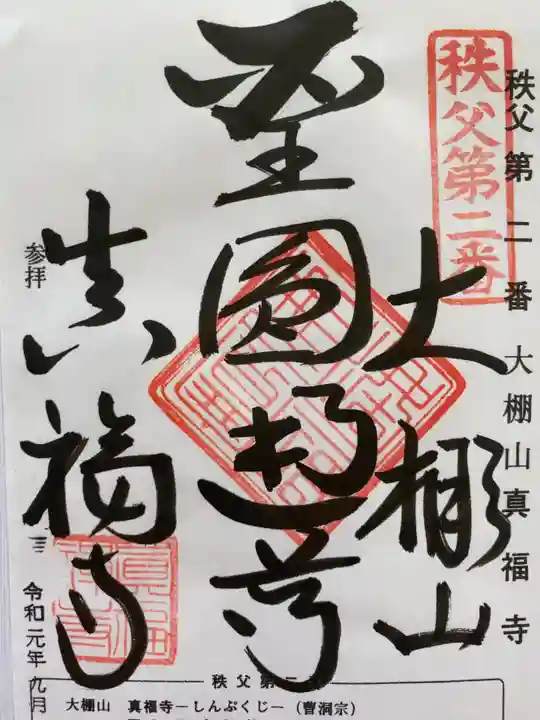 秩父第二番 大棚山真福寺
秩父第二番
大棚山
聖圓通尊
真福寺
参拝
令和元年九月
秩父第二
大棚山 真福寺－しんぷくじ－（曹洞宗）